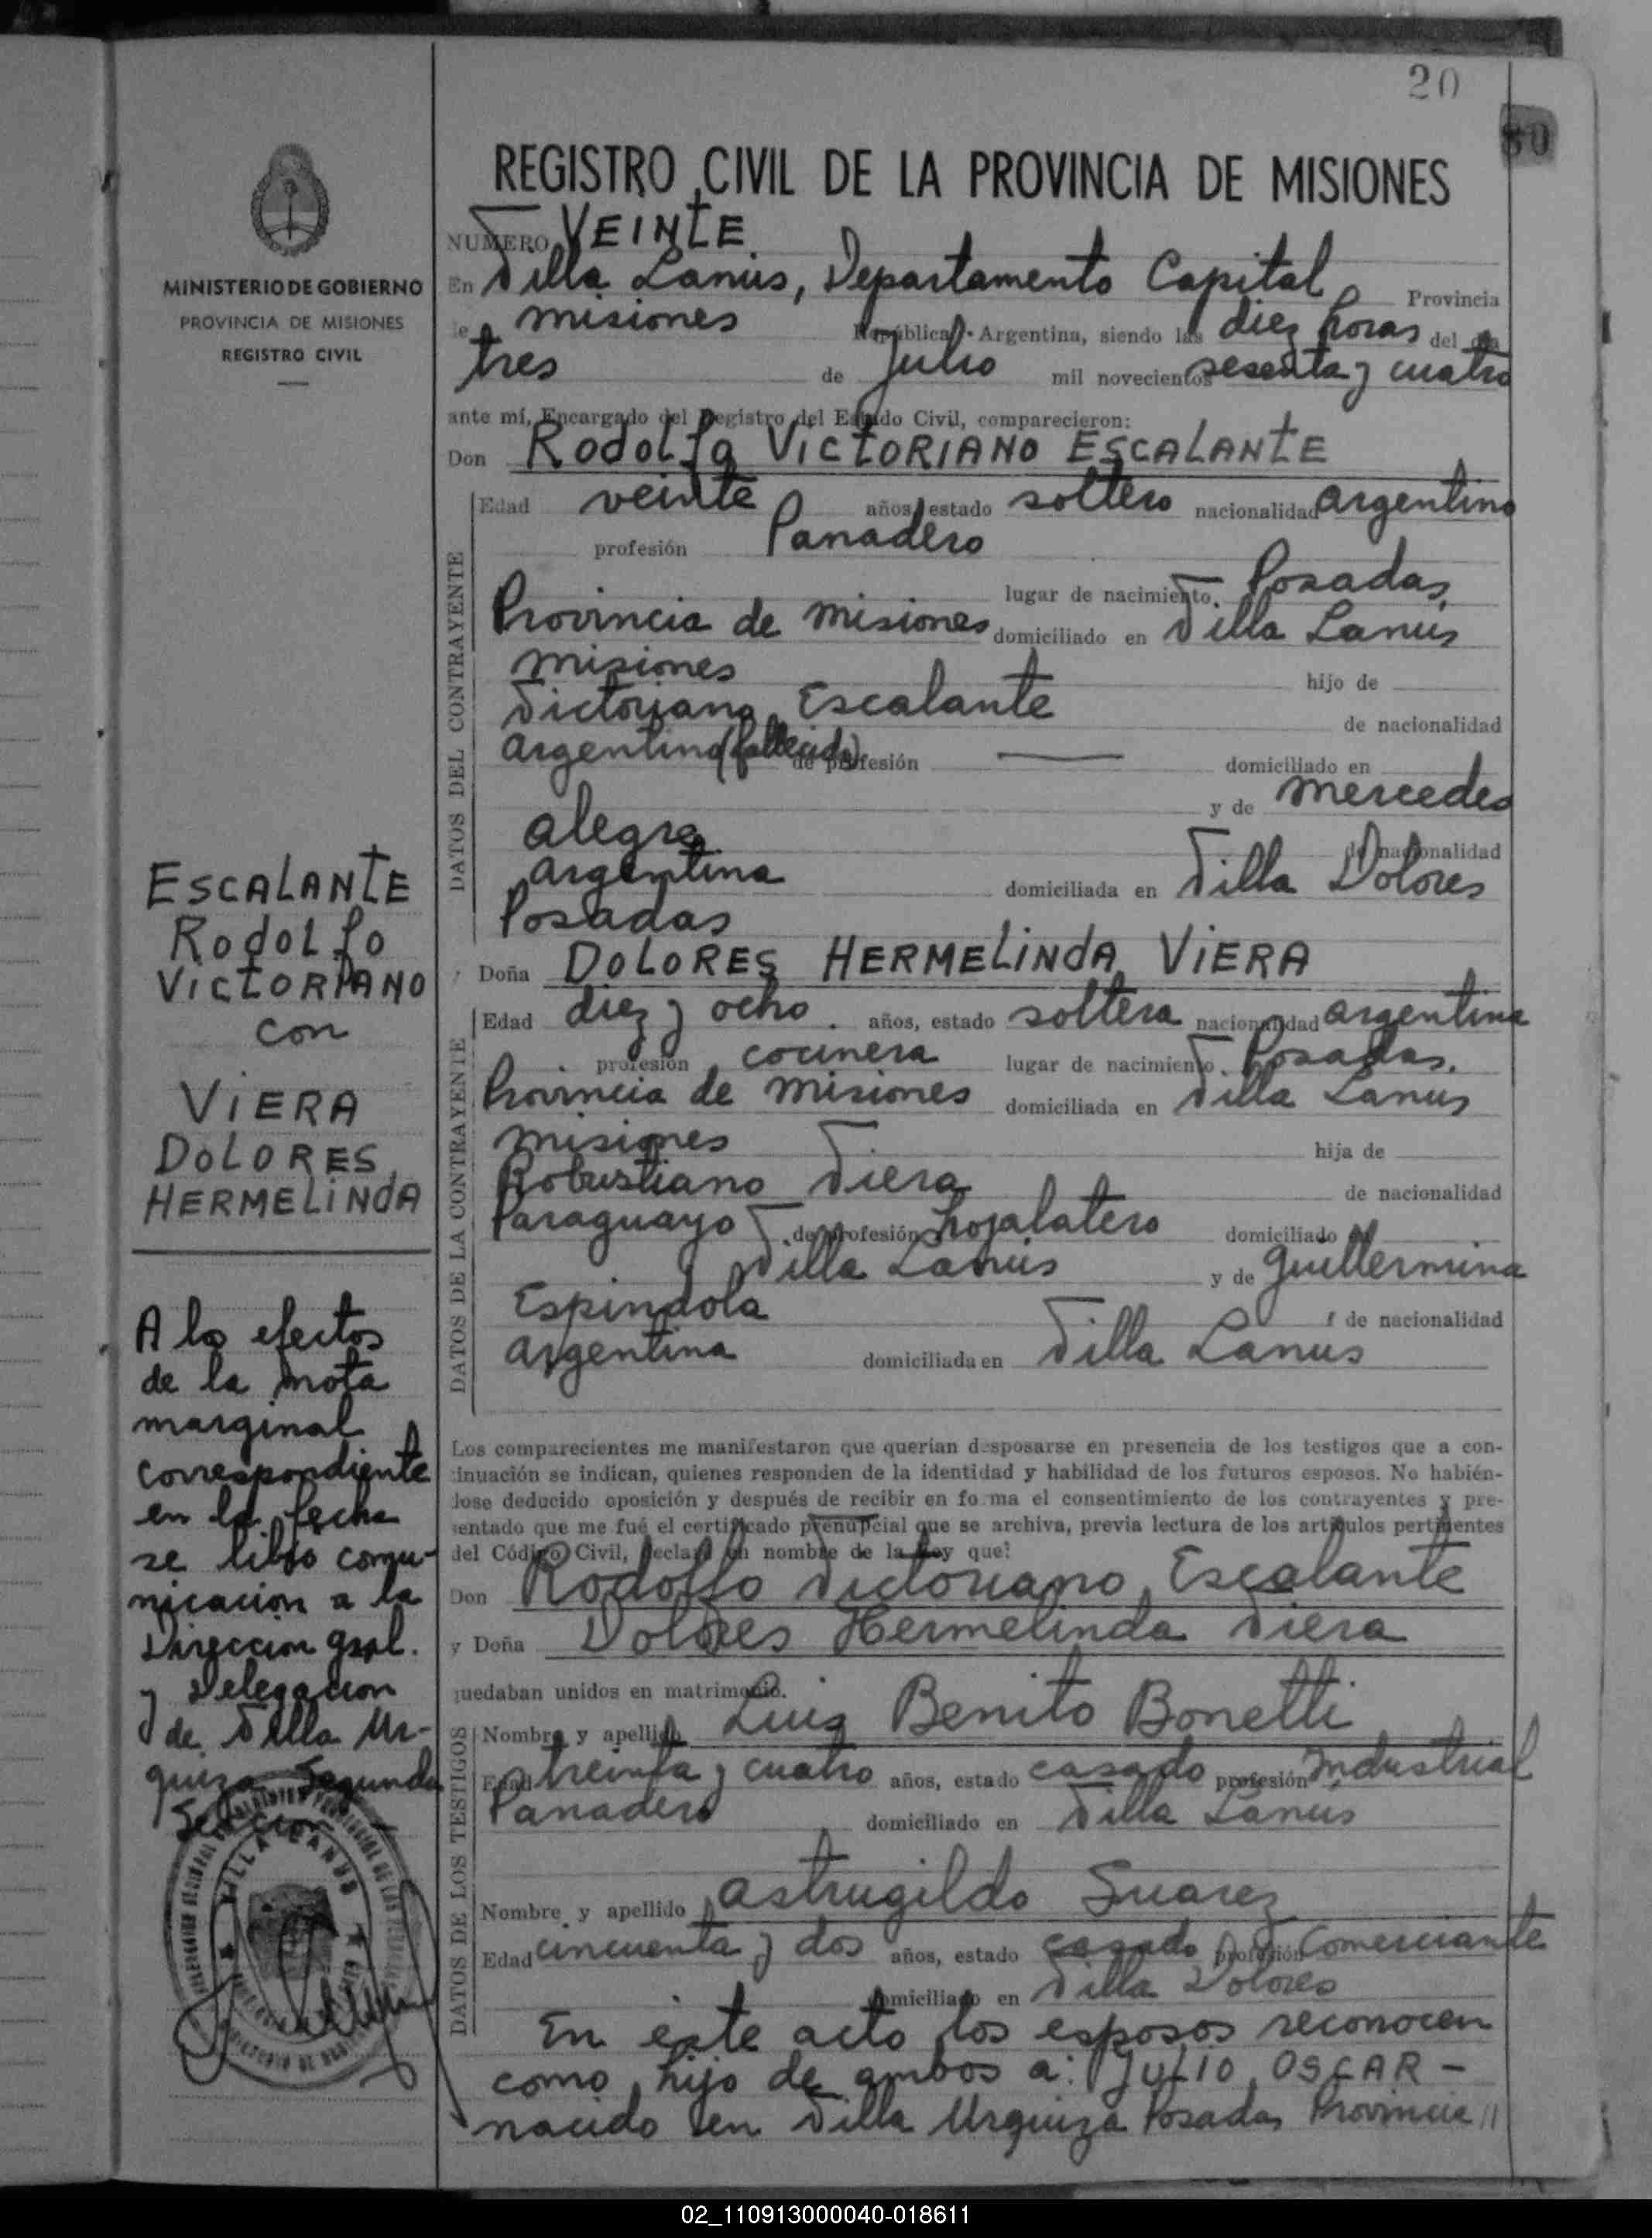 20
80
REGISTRO CIVIL DE LA PROVINCIA DE MISIONES
MINISTERIO DE GOBIERNO
PROVINCIA DE MISIONES
REGISTRO CIVIL
NUMERO VEINTE
En Villa Lanús, Departamento Capital, Provincia
de misiones República Argentina, siendo las diez horas del día
tres de Julio mil novecientos sesenta y cuatro
ante mí, Encargado del Registro del Estado Civil, comparecieron:
Don Rodolfo VICTORIANO ESCALANTE
DATOS DEL CONTRAYENTE
Edad veinte años, estado soltero nacionalidad argentino
profesión Panadero
lugar de nacimiento Posadas,
Provincia de misiones domiciliado en Villa Lanus
misiones hijo de
Victoriano Escalante de nacionalidad
argentino (fallecido) de profesión — domiciliado en
y de mercedes
alegre de nacionalidad
argentina domiciliada en Villa Dolores
Posadas
Doña DOLORES HERMELINDA VIERA
DATOS DE LA CONTRAYENTE
Edad diez y ocho años, estado soltera nacionalidad argentina
profesión cocinera lugar de nacimiento Posadas.
Provincia de misiones domiciliada en Villa Lanus
misiones hija de
Robustiano Viera de nacionalidad
Paraguayo de profesión hojalatero domiciliado en
Villa Lanús y de guillermina
Espindola de nacionalidad
argentina domiciliada en Villa Lanus
Los comparecientes me manifestaron que querían desposarse en presencia de los testigos que a con-
tinuación se indican, quienes responden de la identidad y habilidad de los futuros esposos. No habién-
dose deducido oposición y después de recibir en forma el consentimiento de los contrayentes y pre-
sentado que me fué el certificado prenupcial que se archiva, previa lectura de los artículos pertinentes
del Código Civil, declaro en nombre de la Ley que:
Don Rodolfo Victoriano Escalante
y Doña Dolores Hermelinda Viera
quedaban unidos en matrimonio.
DATOS DE LOS TESTIGOS
Nombre y apellido Luis Benito Bonetti
Edad treinta y cuatro años, estado casado profesión Industrial
Panadero domiciliado en Villa Lanús
Nombre y apellido astrugildo Suarez
Edad cincuenta y dos años, estado casado profesión Comerciante
domiciliado en Villa Dolores
En este acto los esposos reconocen
como hijo de ambos a: JULIO OSCAR -
nacido en Villa Urquiza Posadas Provincia //
ESCALANTE
Rodolfo
VICTORIANO
con
VIERA
DOLORES
HERMELINDA
A los efectos
de la nota
marginal
correspondiente
en la fecha
se libró comu-
nicacion a la
Direccion gral.
y Delegacion
de Villa Ur-
quiza Segunda
Seccion
VILLA LANUS
02_110913000040-018611